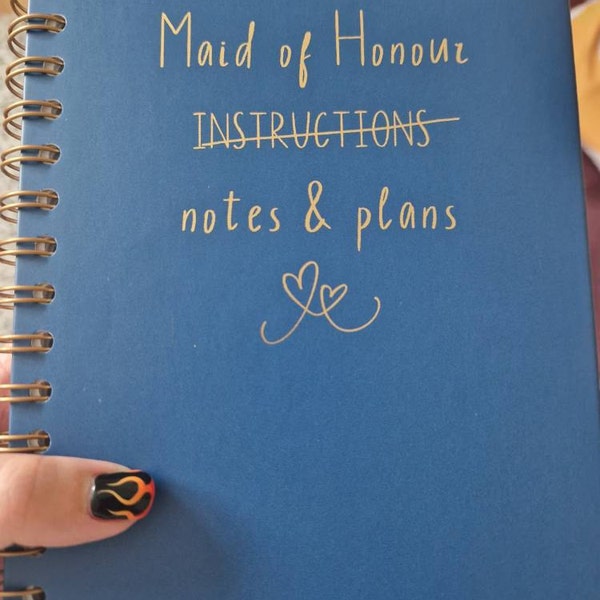 Maid of Honour
INSTRUCTIONS
notes & plans